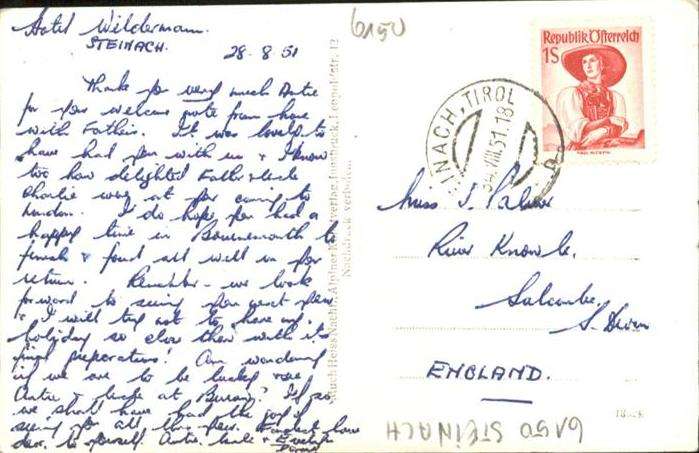 Hotel Wilderman.
STEINACH.
28-8-51
Thank you very much
for your welcome note from home
with Father. It was lovely to
have had you with us & I know
too how delighted
Charlie were at your coming to
London. I do hope you had a
happy time in Bournemouth to
finish & found all well on your
return. Remember - we look
forward to seeing you next year
& I will try not to have my
holiday so close then with its
final preparations! Am wondering
if we are to be lucky & see
at If so
we shall have had the joy of
seeing you all this year. Fondest love
dear, to yourself.
6150
Republik Österreich
1S
STEINACH, TIROL
30.VIII.51.18
Miss J. Palmer
River Knowle.
Salcombe.
S. Devon
ENGLAND.
6150 STEINACH
Nachdruck verboten